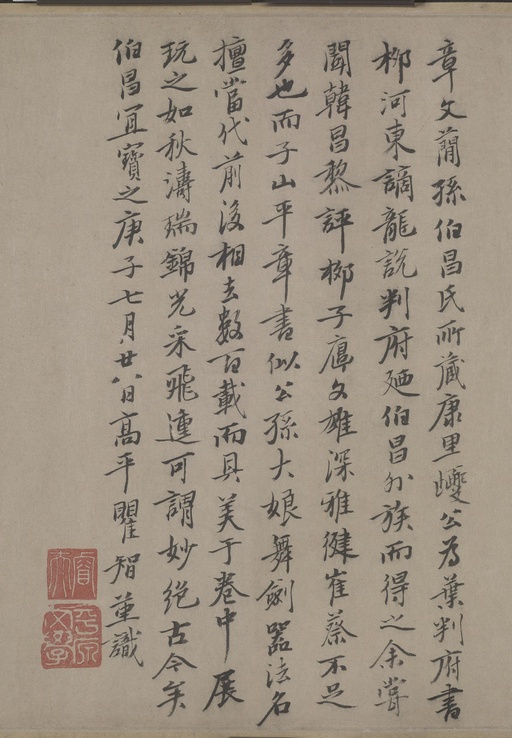 章文蕳孫伯昌氏所藏康里巙公為葉判府書
栁河東謫龍說判府廼伯昌外族而得之余嘗
聞韓昌黎評栁子厚文雄深雅健崔蔡不足
多也而子山平章書似公孫大娘舞劒器法名
擅當代前後相去數百載而具美于卷中展
玩之如秋濤瑞錦光采飛連可謂妙絶古今矣
伯昌宜寶之庚子七月廿八日髙平瞿智菫識
睿夫